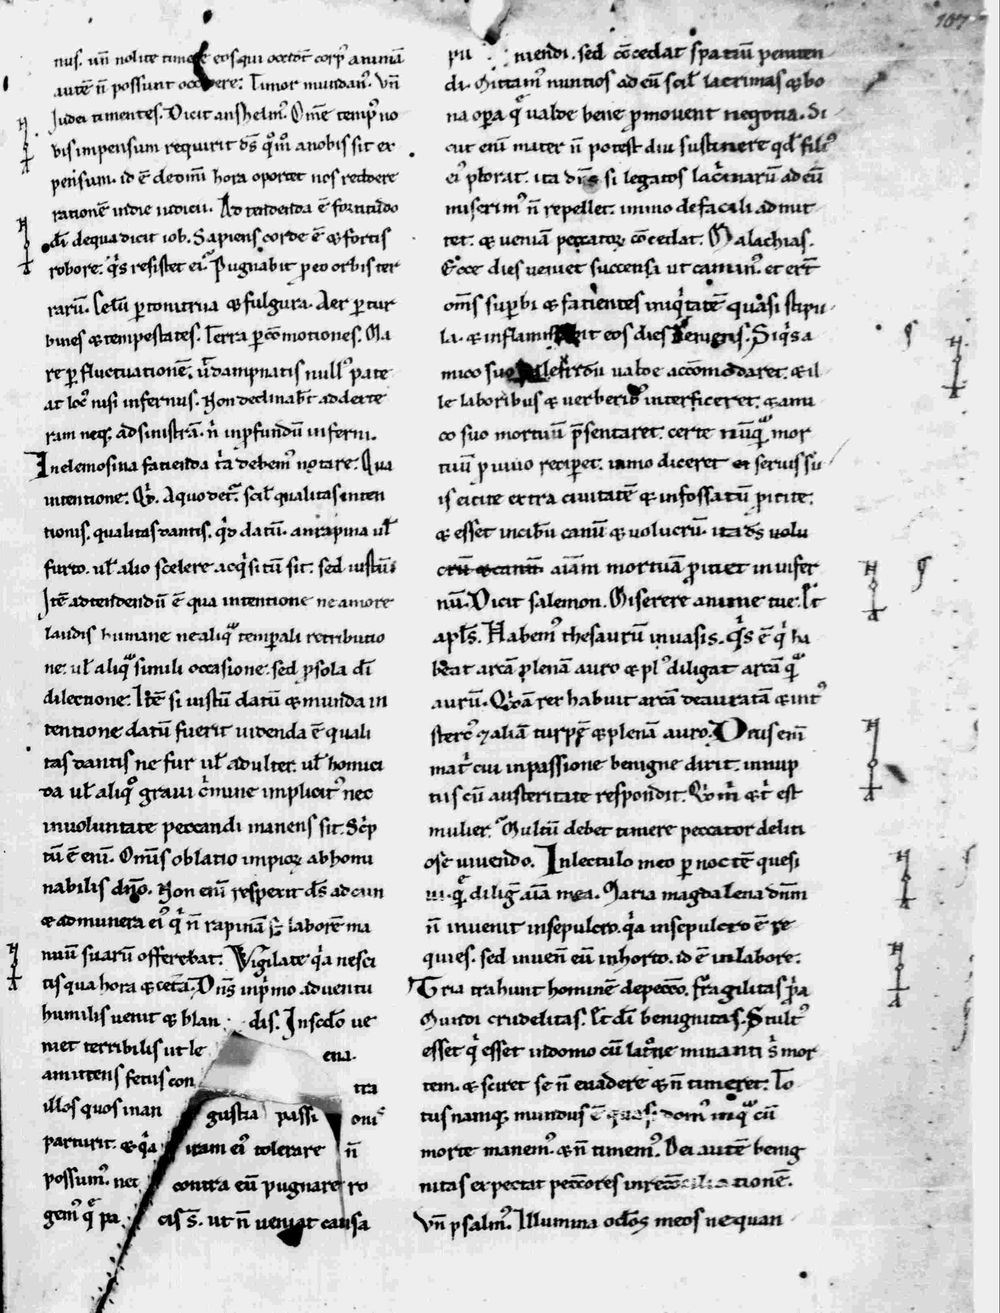 107
nus. uñ nolite timere eos qui occidt̄ corp' animā
autē n̄ possunt occidere: Timor mundan'. Vñ
Iudei timentes. Dicit anshelm'. Om̄e temp' uo
bis inpensum requirit d̄s q̊m̊ a nobis sit ex
pensum. id ē de om̄i hora oportet nos reddere
rationē in die iudicii. Ad tendenda ē fortitudo
dī de qua dicit iob. Sapiens corde ē & fortis
robore: q̊s resistet ei'. Pugnabit p eo orbis ter
rarū. Celū p tonitrua & fulgura. Aer p tur
bines & tempestates. Terra p cōmotiones. Ma
re p fluctuationē. ū dampnatis null' pate
at loc' nisi infernus. Non declinabt̄ ad dexte
ram neq; ad sinistrā. n̄ in pfundū inferni.
In elemosina facienda t̊a debem' notare. Qua
intentione: Q̊. A quo det̊. scil̄ qualitas inten
tionis. qualitas dantis. q̊d datū. an rapina ul̄
furto. ul̄ alio scelere acq̊situ sit: sed iustū
Itē adtendendū ē qua intentione ne amore
laudis humane ne aliq̊ temporali retributio
ne: ul̄ aliq̊ simili occasione: sed p sola dī
dilectione: Itē si iustū datū & munda in
tentione datū fuerit uidenda ē quali
tas dantis ne fur ul̄ adulter. ul̄ homici
da ul̄ aliq̊ graui c̊mine implicit' nec
in uoluntate peccandi manens sit. Sc̊p
tū ē enī. Om̄is oblatio impioꝝ abhomi
nabilis dn̄o. Non enī respexit d̄s ad cain
& ad munera ei' q̊ n̄ rapinā s; laborē ma
nuū suarū offerebat: Vigilate q̊a nesci
tis qua hora & cetā. Dn̄s in p̊mo aduentu
humilis uenit & blan dis. In scd̄o ue
niet terribilis ut le ena.
amittens fetus con tra
illos quos inan gustia passi oni'
parturit. & q̊a iram ei' tolerare n̄
possum'. nec contra eū pugnare ro
gem' q̊ pa cis s̄. ut n̄ ueniat causa
pu niendi. sed cōcedat spatiū peniten
di. Mittam' nuntios ad eū scil̄ lacrimas & bo
na opera q̊ ualde bene pmouent negotia. Si
cut enī mater n̄ potest diu sustinere qd̄ fili'
ei' plorat: ita dn̄s si legatos lac̊marū ad eū
miserim' n̄ repellet: immo de facili admit
tet: & ueniā peccatoꝝ cōcedat. Malachias.
Ecce dies ueniet succensa ut camin'. et ert̄
om̄s supbi & facientes iniq̊tatē quasi stipu
la. & inflammabit eos dies ueniens. Si q̊s a
mico suo ualde accōmodaret: & il
le laboribus & uerberib; interficeret: & ami
co suo mortuū p̄sentaret: certe nūq̊ mor
tuū p uiuo reciperet: immo diceret et seruis su
is eicite extra ciuitatē & in fossatū p̊icite:
& esset in cibū canū & uolucrū. ita d̄s uolu
crū & canū aīam mortuā p̊iciet in infer
nū. Dicit salemon. Miserere anime tue. It̄
apl̄s. Habem' thesaurū in uasis. Q̊s ē q̊ ha
beat arcā plenā auro & pl' diligat arcā q̊
aurū. Q̊dā rex habuit arcā deauratā & int'
sterc' & aliā turpē & plenā auro. Deus enī
mat̊ cui in passione benigne dixit. in nup
tiis cū austeritate respondit. Q̊ m̊ & t̊ est
mulier. Multū debet timere peccator deliti
ose uiuendo. In lectulo meo p noctē quesi
ui. q̊ dilig̊ aīa mea. Maria magdalena dn̄m
n̄ inuenit in sepulcro. q̊a in sepulcro ē re
quies. sed inuen̄ eū in horto. id ē in labore:
Tria trahunt hominē de pecc̊o. fragilitas p̊a
Mundi crudelitas. Et dī benignitas. Stult'
esset q̊ esset in domo cū latrōe minanti s̊ mor
tem. & sciret se n̄ euadere & n̄ timeret: To
tus namq; mundus ē quasi dom' in q̊ cū
morte manem'. & n̄ timem'. Dei autē benig
nitas expectat peccōres in reconciliationē.
Vñ psalm'. Illumina oc̄los meos ne quan